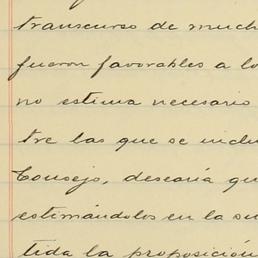 transcurso de much
fueron favorables a lo
no estima necesario
tre las que se inclu
Consejo, desearía qu
estimándolos en la su
tida la proposición